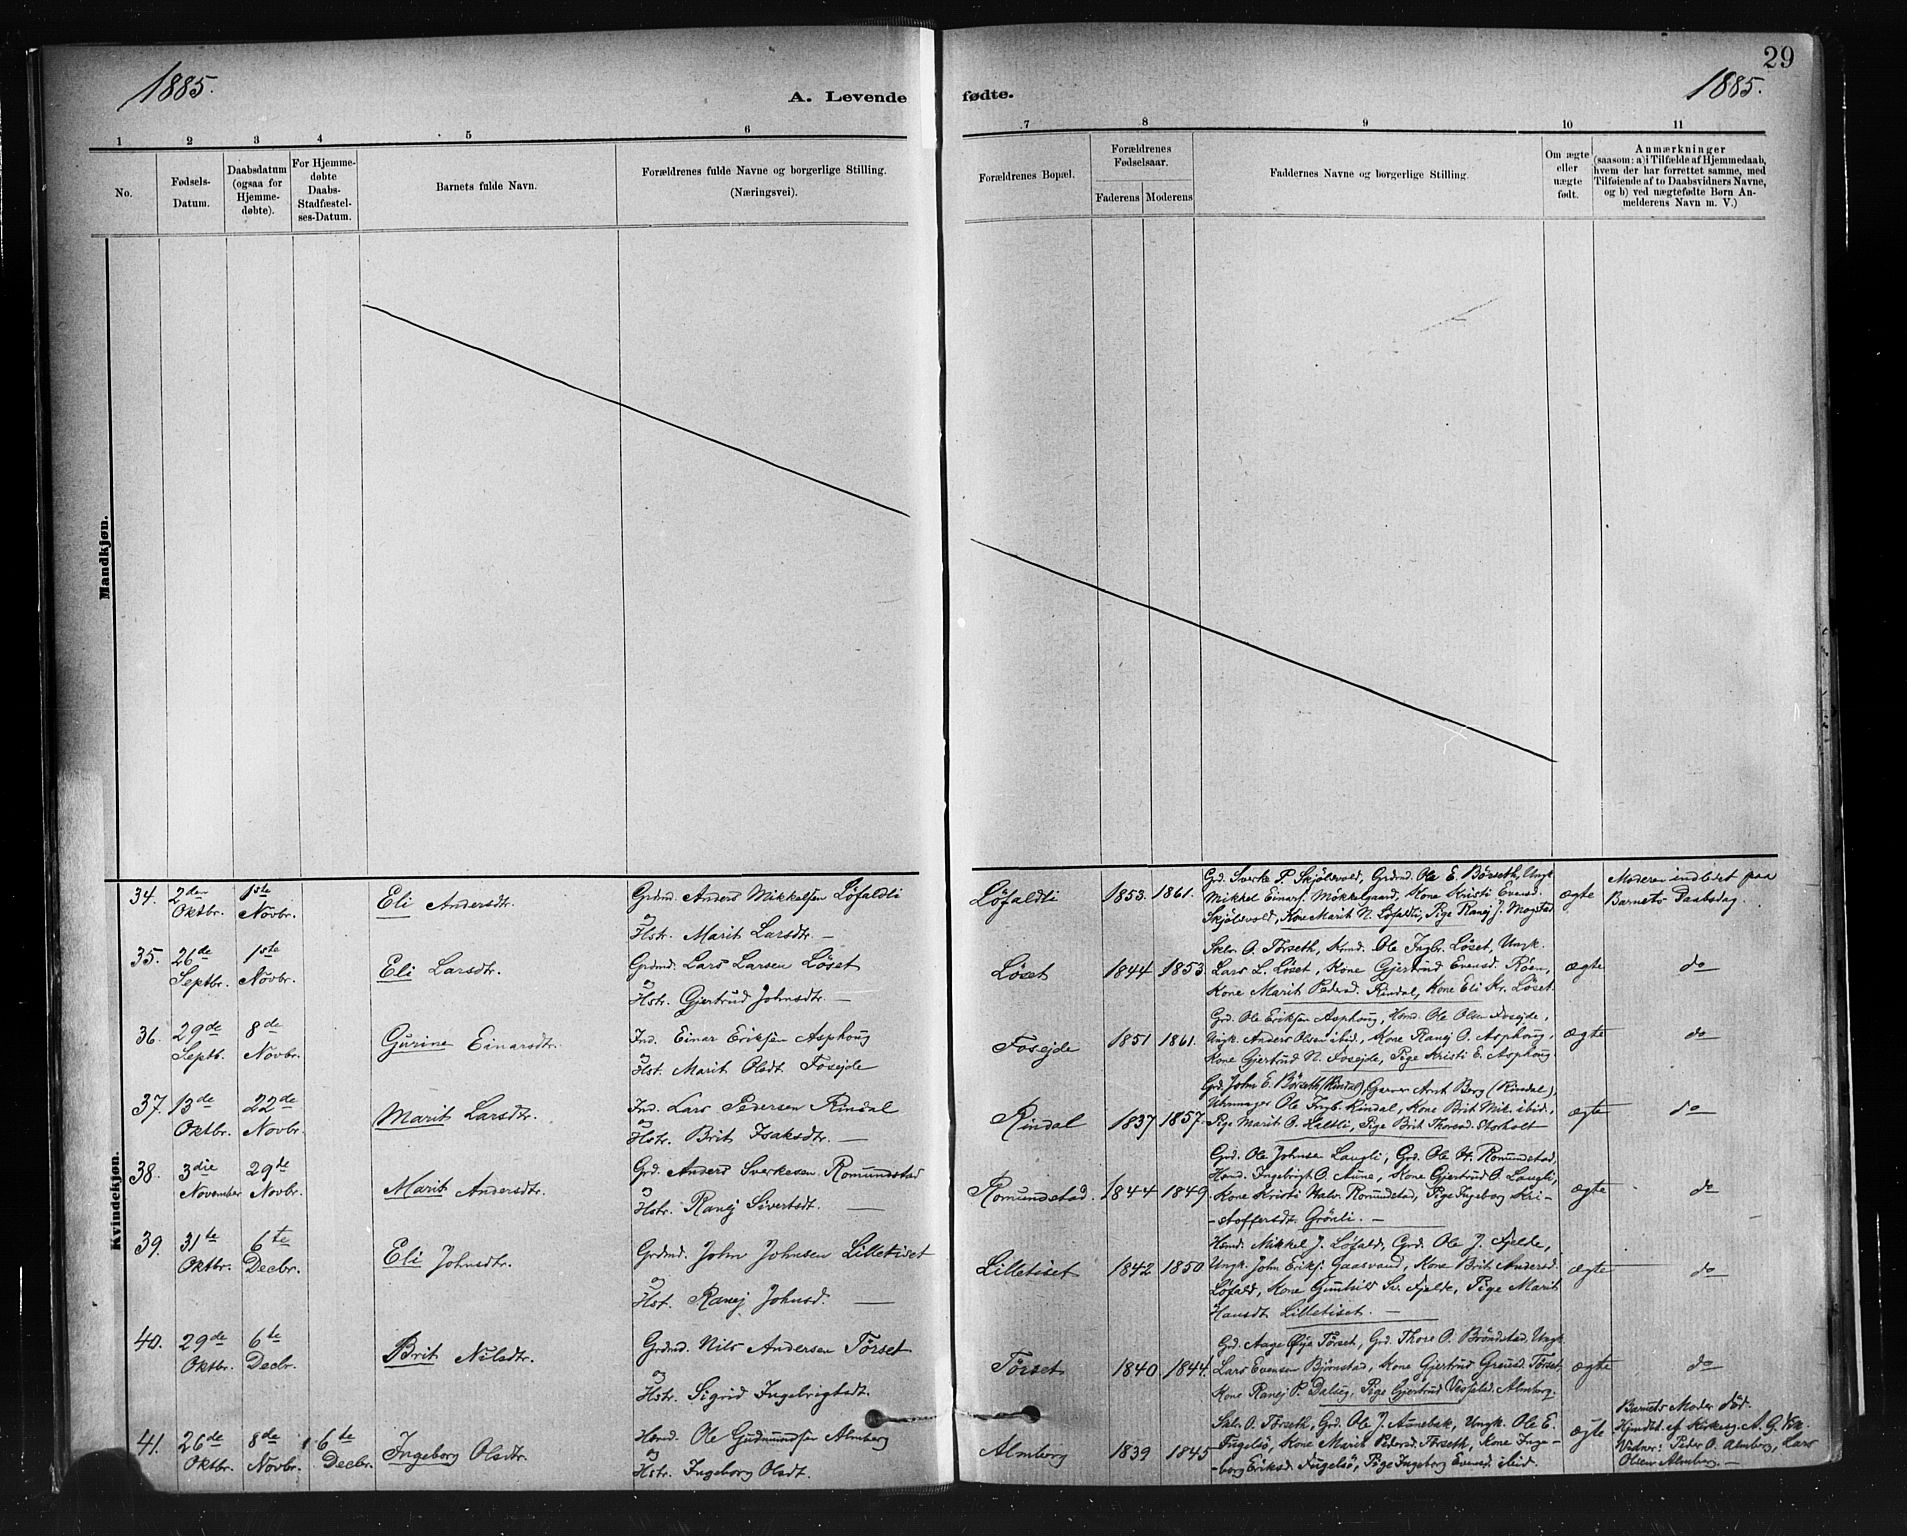 29
1885.
1885.
A. Levende fødte.
1 2 3 4 5 6 7 8 9 10 11
No.
Fødsels-
Datum.
Daabsdatum
(ogsaa for
Hjemme-
døbte).
For Hjemme-
døbte
Daabs-
Stadfæstel-
ses-Datum.
Barnets fulde Navn.
Forældrenes fulde Navne og borgerlige Stilling.
(Næringsvei).
Forældrenes Bopæl.
Forældrenes
Fødselsaar.
Faderens Moderens
Faddernes Navne og borgerlige Stilling.
Om ægte
eller
uægte
født.
Anmærkninger
(saasom: a) i Tilfælde af Hjemmedaab,
hvem der har forrettet samme, med
Tilføiende af to Daabsvidners Navne,
og b) ved uægtefødte Børn An-
melderens Navn m. V.)
Mandkjøn.
Kvindekjøn.
34.
2den
Oktbr.
1ste
Novbr.
Eli Andersdtr.
Grdmd. Anders Mikkelsen Löfaldli
og
Hstr. Marit Larsdtr. —
Löfaldli
1853. 1861.
Grd. Sverke P. Skjölsvold, Grdmd. Ole E. Börseth, Ungk.
Mikkel Einars. Mökkelgaard, Kone Kristi Evensd.
Skjölsvold, Kone Marit N. Löfaldli, Pige Ranej J. Mogstad
ægte
Moderen indledet paa
Barnets Daabsdag.
35.
26de
Septbr.
1ste
Novbr.
Eli Larsdtr.
Grdmd. Lars Larsen Löset
og
Hstr. Gjertrud Johnsdtr. —
Löset
1844 1853
Sklr. O. Törseth, Kmd. Ole Ingbr. Löset, Ungk.
Lars L. Löset, Kone Gjertrud Evensd. Röen,
Kone Marit Pedersd. Rindal, Kone Eli Kr. Löset.
ægte
do
36.
29de
Septb.
8de
Novbr.
Gurine Einarsdtr.
Ind. Einar Eriksen Asphoug
og
Hst. Marit Olsdt. Fosejde
Fosejde
1851 1861.
Grd. Ole Eriksen Asphoug, Hmd. Ole Olsen Fosejde,
Ungk. Anders Olsen ibid., Kone Ranej O. Asphoug,
Kone Gjertrud N. Fosejde, Pige Kristi E. Asphoug.
ægte
do
37.
13de
Oktbr.
22de
Novbr.
Marit Larsdtr.
Ind. Lars Pedersen Rindal
og
Hstr. Brit Isaksdtr. —
Rindal
1837 1857.
Grd. John E. Börseth (Rindal), Garver Arnt Berg (Rindal),
Uhrmager Ole Ingb. Rindal, Kone Brit Mik. ibid.,
Pige Marit O. Haltli, Pige Brit Thoresd.
ægte
do
38.
3die
November
29de
Novbr.
Marit Andersdtr.
Grd. Anders Sverkesen Romundstad
og
Hstr. Ranej Sivertsdt. —
Romundstad
1844 1849
Grd. Ole Johnsen Langli, Grd. Ole H. Romundstad,
Hmd. Ingebrigt O. Aune, Kone Gjertrud O. Langli,
Kone Kristi Halv. Romundstad, Pige Ingeborg Kri-
-stoffersdt. Grönli. —
ægte
do
39.
31te
Oktbr.
6te
Decbr.
Eli Johnsdtr.
Grdmd. John Johnsen Lilletiset
og
Hst. Ranej Johnsd. —
Lilletiset
1842 1850
Hsmd. Mikkel J. Löfald, Grd. Ole J. Fjelde,
Ungk. John Eriks. Gaasvand, Kone Brit Andersd.
Löfald, Kone Gunhild Sv. Fjelde, Pige Marit
Hansdt. Lilletiset. —
ægte
do
40.
29de
Oktbr.
6te
Decbr.
Brit Nilsdtr.
Grdmd. Nils Andersen Törset
og
Hstr. Sigrid Ingebrigtsdt.
Törset
1840 1844.
Gd. Aage Öye Törset, Grd. Thore O. Bröndstad, Ungk.
Lars Evensen Björnstad, Kone Gjertrud Törset,
Kone Ranej P. Dalseg, Pige Gjertrud Almberg.
ægte
do
41.
26de
Oktbr.
8de
Novbr.
6te
Decbr.
Ingeborg Olsdtr.
Hsmd. Ole Gudmundsen Almberg
og
Hstr. Ingeborg Olsdt.
Almberg
1839 1845
Sklr. O. Törseth, Grd. Ole J. Aunebak, Ungk. Ole E.
Fugelsö, Kone Marit Pedersd. Törseth, Kone Inge-
-borg Eriksd. Fugelsö, Pige Ingeborg Evensd. ibid.
ægte
Barnets Moder död.
Hjmdbt. af Kirkesg. A. G.
Vidner: Peder O. Almberg, Lars
Olsen Almberg. —